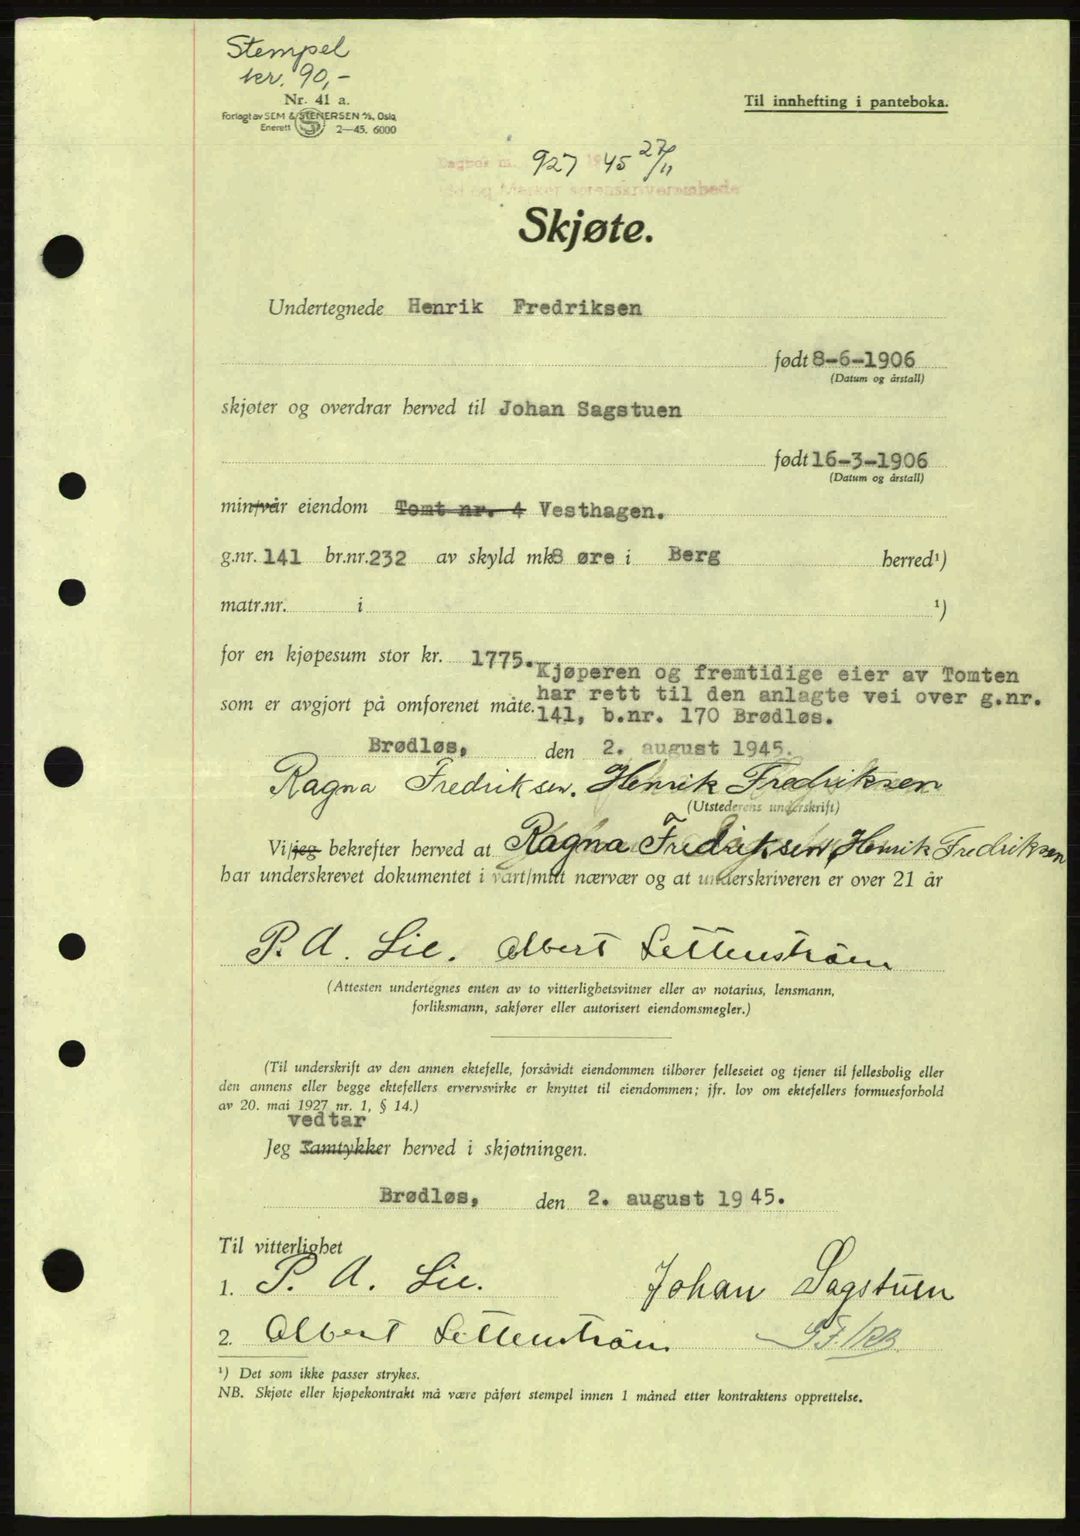 Stempel
kr. 90,-
Nr. 41 a.
Forlagt av SEM & STENERSEN A/S, Oslo
Enerett 2—45. 6000
Til innhefting i panteboka.
Dagbok nr. 927 19 45 27/11
Idd og Marker sorenskriverembede
Skjøte.
Undertegnede Henrik Fredriksen
født 8-6-1906
(Datum og årstall)
skjøter og overdrar herved til Johan Sagstuen
født 16-3-1906
(Datum og årstall)
min/vår eiendom Tomt nr. 4 Vesthagen.
g.nr. 141 br.nr. 232 av skyld mk 8 øre i Berg herred¹)
matr.nr. i ¹)
for en kjøpesum stor kr. 1775.
Kjøperen og fremtidige eier av Tomten
har rett til den anlagte vei over g.nr.
som er avgjort på omforenet måte. 141, b.nr. 170 Brødløs.
Brødløs, den 2. august 1945.
Ragna Fredriksen. Henrik Fredriksen
(Utstederens underskrift)
Vi/jeg bekrefter herved at Ragna Fredriksen, Henrik Fredriksen
har underskrevet dokumentet i vårt/mitt nærvær og at underskriveren er over 21 år
P. A. Lie. Albert Lettenstrøm
(Attesten undertegnes enten av to vitterlighetsvitner eller av notarius, lensmann,
forliksmann, sakfører eller autorisert eiendomsmegler.)
(Til underskrift av den annen ektefelle, forsåvidt eiendommen tilhører felleseiet og tjener til fellesbolig eller
den annens eller begge ektefellers ervervsvirke er knyttet til eiendommen; jfr. lov om ektefellers formuesforhold
av 20. mai 1927 nr. 1, § 14.)
vedtar
Jeg samtykker herved i skjøtningen.
Brødløs, den 2. august 1945.
Til vitterlighet
1. P. A. Lie. Johan Sagstuen
2. Albert Lettenstrøm
¹) Det som ikke passer strykes.
NB. Skjøte eller kjøpekontrakt må være påført stempel innen 1 måned etter kontraktens opprettelse.